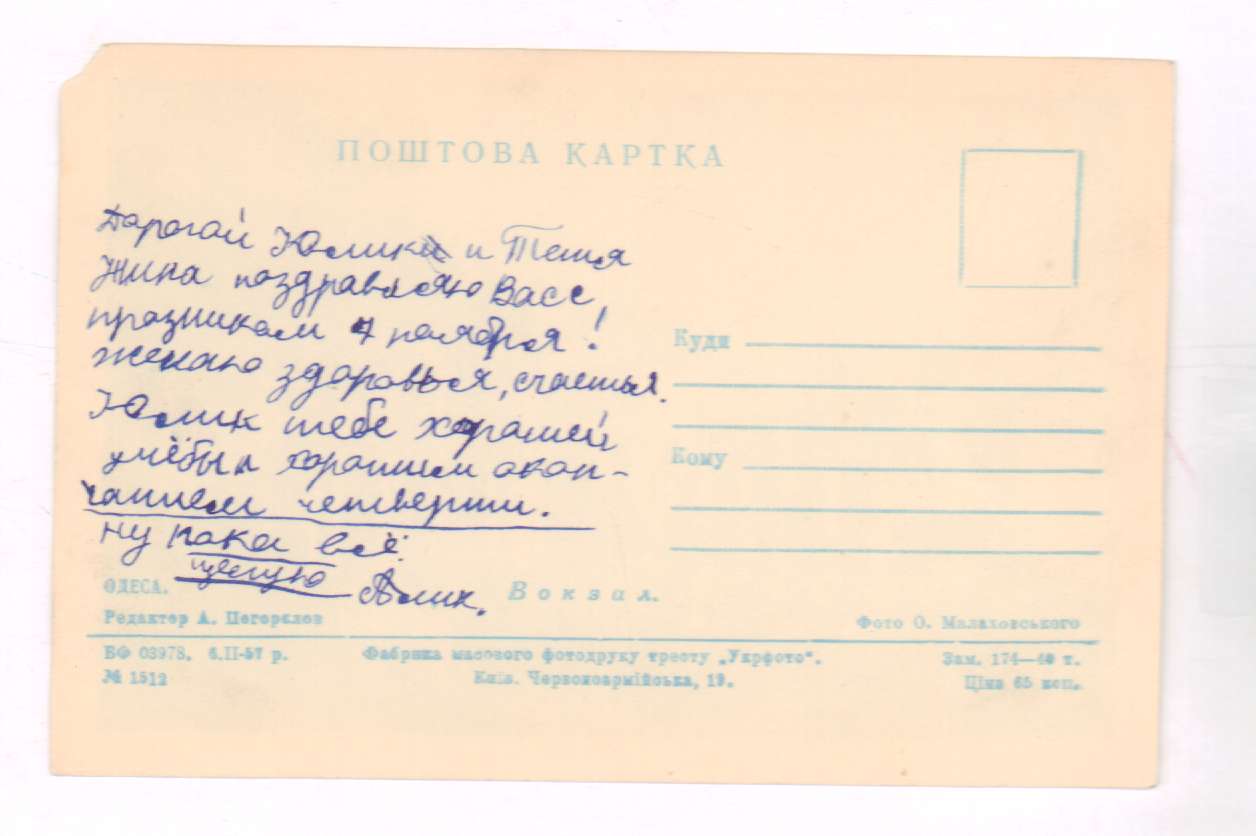 ПОШТОВА КАРТКА
Дарогой Юлик и Тетя
Жина поздравляю Вас с
празником 7 ноября!
желаю здоровья, счастья.
Юлик тебе харошей
учёбы и харошим окон-
чанием четверти.
ну пака всё.
целую Алик.
Куди
Кому
ОДЕСА. Вокзал.
Редактор А. Погорєлов
Фото О. Малаховського
БФ 03978. 6.II-57 р.
Фабрика масового фотодруку тресту „Укрфото".
Зам. 174—40 т.
№ 1512
Київ. Червоноармійська, 19.
Ціна 65 коп.